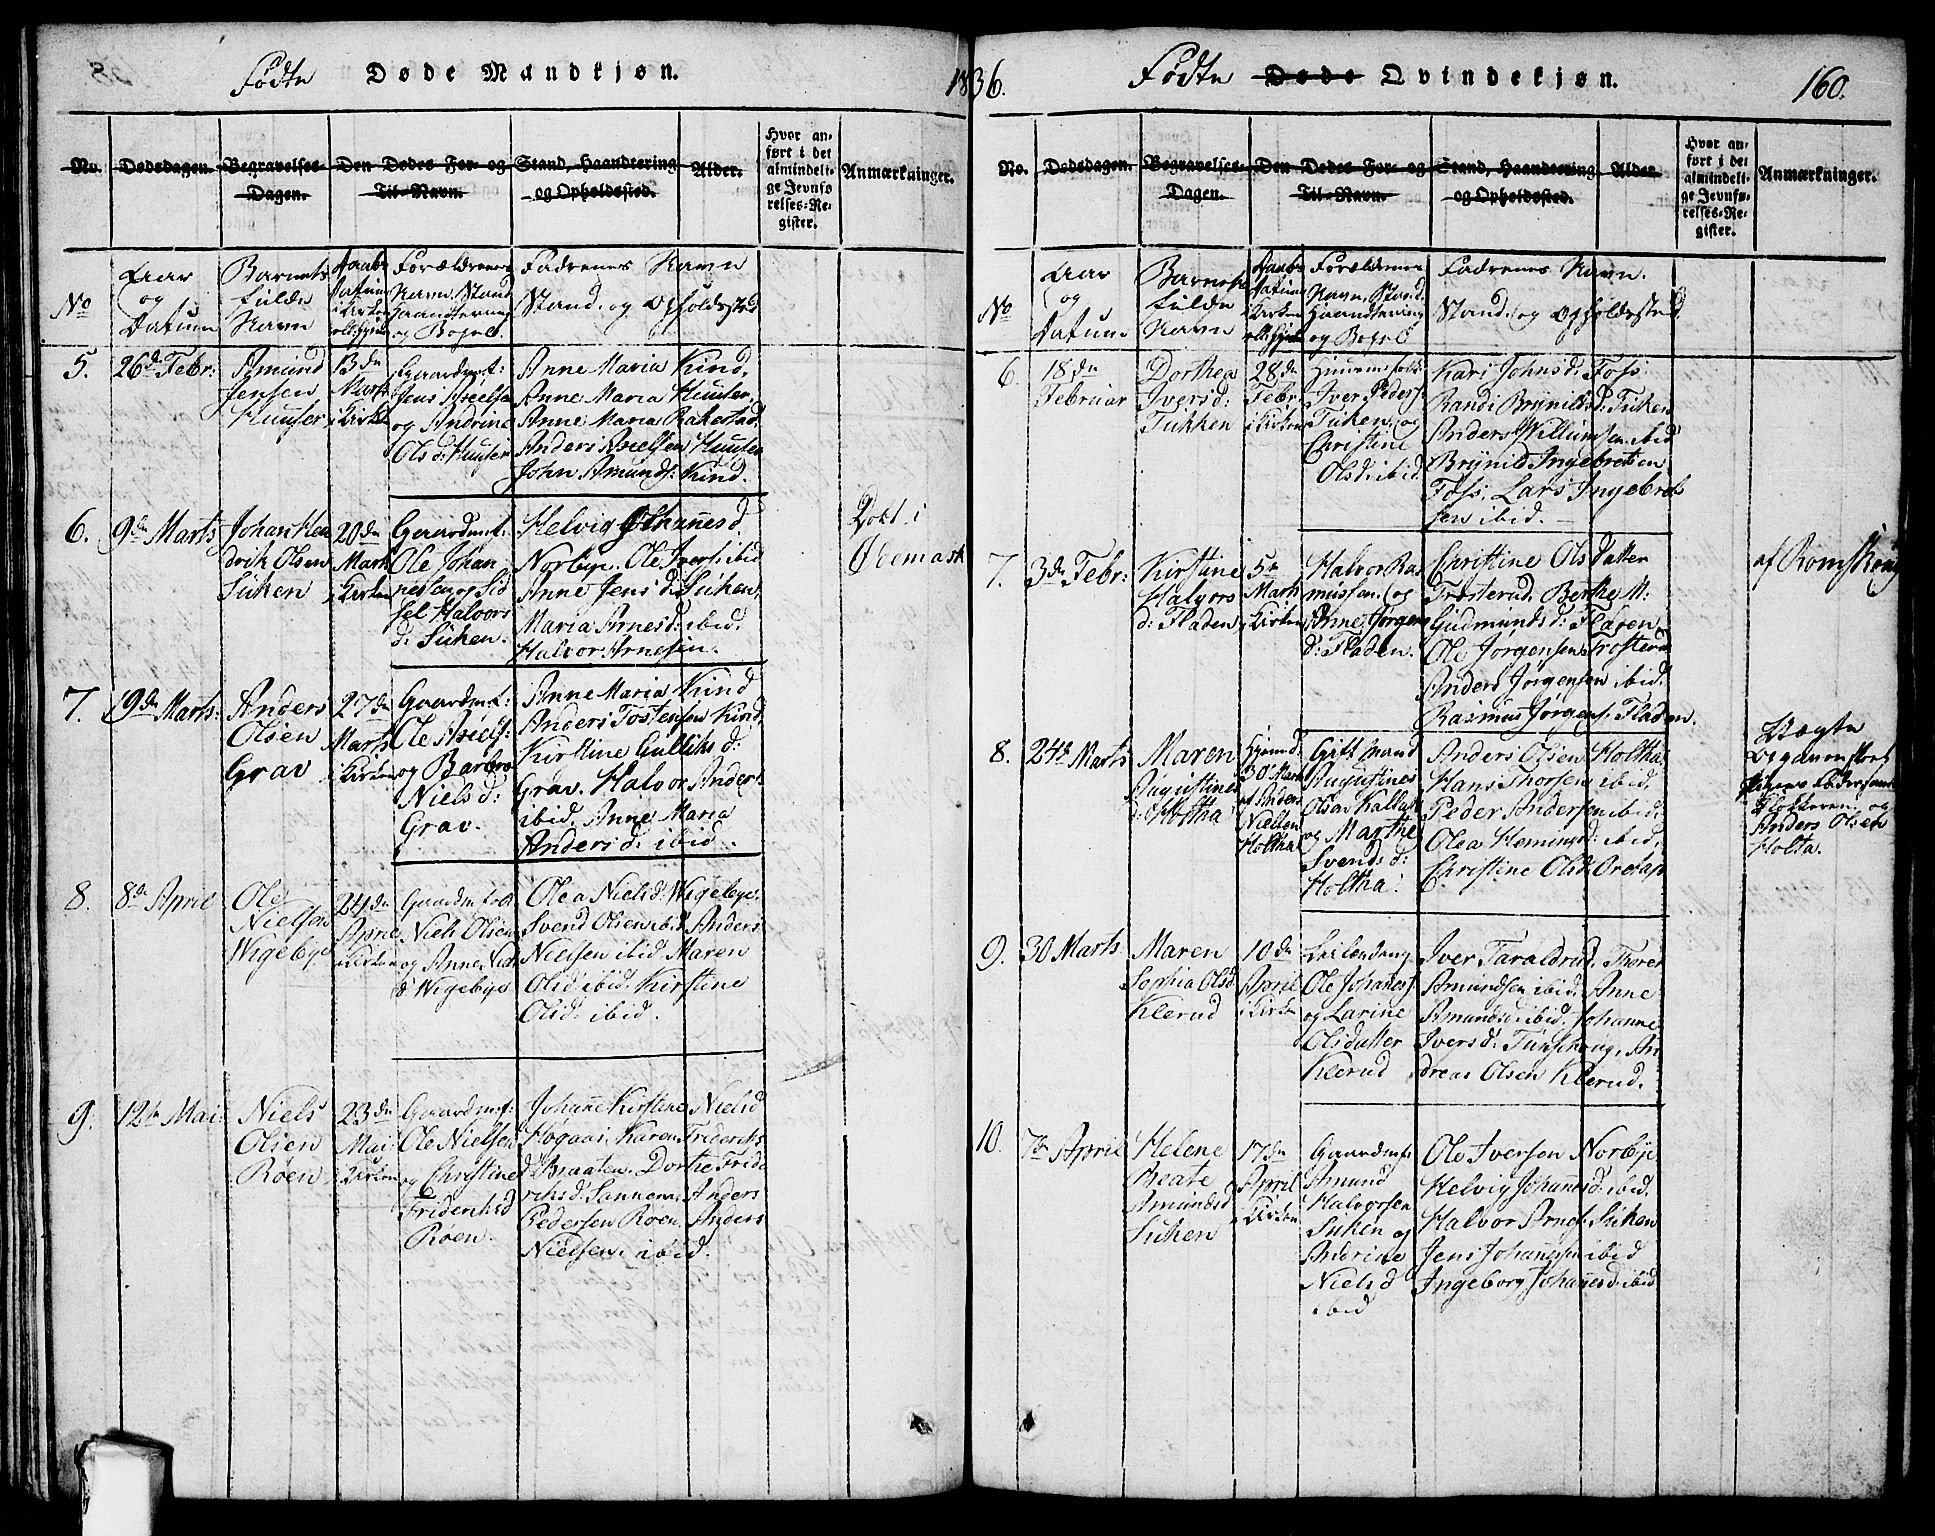 Fødte Døde Mandkjøn.
1836.
No. Dødsdagen. Begravelses-Dagen. Den Dødes For- og Til-Navn. Stand, Haandtering og Opholdssted. Alder. Hvor anført i det almindelige Jevnførelses-Register. Anmærkninger.
No
Aar
og
Datum
Barnets
fulde
Navn
Daabs
Datum
i Kirken
Forældrenes
Navn, Stand
Haandtering
og Bopæl.
Fadrenes Navn
Stand, og Opholdssted
5.
26de Febr:
Amund
Jensen
Huuser
13de
Marts
i Kirken
Gaardmf:
Jens Axelsen
og Andrine
Olsd: Huuser
Anne Maria Kind,
Anne Maria Huuser,
Anne Maria Rakestad
Anders Axelsen Huuser
John Amunds: Kind.
6.
9de Marts
Johan Hen
drik Olsen
Suken
20de
Marts
i Kirken
Gaardmf:
Ole Johan
nesen og Sid
sel Halvors
d: Suken.
Helvig Johannesd
Norbye. Ole Ivers: ibid
Anne Jensd: Suken,
Maria Arnesd: ibid.
Halvor Arnesen.
Døbt i
Ødemark
7.
19de Marts:
Anders
Olsen
Grav
27de
Marts
i Kirken
Gaardmf:
Ole Axels:
og Barbro
Nielsd:
Grav.
Anne Maria Kind
Anders Tostensen Kind,
Kirstine Gulliksd:
Grav. Halvor Anders:
ibid. Anne Maria
Andersd: ibid.
8.
8de April
Ole
Nielsen
Wigebye
24de
April
i Kirken
Gaardmfolk
Niels Olsen
og Anne Niels
d: Wigebye
Olea Nielsd: Wigebye.
Svend Olsen ibid Anders
Nielsen ibid Maren
Olsd: ibid. Kirstine
Olsd: ibid.
9.
12te Mai:
Niels
Olsen
Røen
23de
Mai
i Kirken
Gaardmf:
Ole Nielsen
og Christine
Frideriksd
Røen.
Johanne Kirstine Nielsd
Høgaas, Karen Frideriks
d: Braaten. Dorthe Fride
riksd: Sannerne. Anders
Pedersen Røen, Anders
Nielsen ibid.
Fødte Døde Qvindekjøn.
160.
No. Dødsdagen. Begravelses-Dagen. Den Dødes For- og Til-Navn. Stand, Haandtering og Opholdssted. Alder. Hvor anført i det almindelige Jevnførelses-Register. Anmærkninger.
No
Aar
og
Datum
Barnets
fulde
Navn
Daabs
Datum
i Kirken
Forældrenes
Navn, Stand,
Haandtering
og Bopæl
Fadrenes Navn.
Stand, og Opholdssted
6.
18de
Februar
Dorthea
Iversd:
Tukken
28de
Febr
i Kirken
Iver Peders:
Tuken, og
Christine
Olsd: ibid.
Kari Johnsd: Foss.
Randi Brynildsd: Tuken
Anders Willumsen ibid
Brynild Ingebretsen
Foss, Lars Ingebret
sen ibid.
7.
3de Febr:
Kirstine
Halvors
d: Fladen
5te
Marts
i Kirken
Halvor Ras
mussen og
Anne Jørgens
d: Fladen.
Christine Olsdatter
Trosterud. Berthe M:
Gudmundsd: Fladen,
Ole Jørgensen Trosterud
Anders Jørgensen ibid.
Rasmus Jørgens: Fladen.
af Romskoug
8.
24de Marts
Maren
Augustines
d: Holtha
30 Marts
af Anders
Nielsen
Holtha
Gift Mand
Augustines
Olsen Kallak
og Marthe
Svends d:
Holtha.
Anders Olsen Holtha,
Hans Thorsen ibid.
Peder Andersen ibid:
Olea Hemingsd: ibid,
Christine Olsd:
Uægte
Klokkeren og
Anders Olsen
Holta.
9.
30 Marts
Maren
Sophia Olsd
Klerud
10de
April
i Kirken
Leilending
Ole Johannes:
og Larine
Olsdatter
Klerud
Iver Taraldrud. Thorer
Amundsen ibid. Anne
Amundsd: ibid. Johanne
Iversd: Tunskoug. An
dreas Olsen Klerud.
10.
7de April
Helene
Beate
Amundsd
Suken
17de
April
i Kirken
Gaardmf:
Amund
Halvorsen
Suken og
Anerine
Nielsd
ibid
Ole Iversen Norbye
Helvig Johannesd: ibid.
Halvor Arnes: Suken
Jens Johannesen ibid
Ingeborg Johannesd: ibid